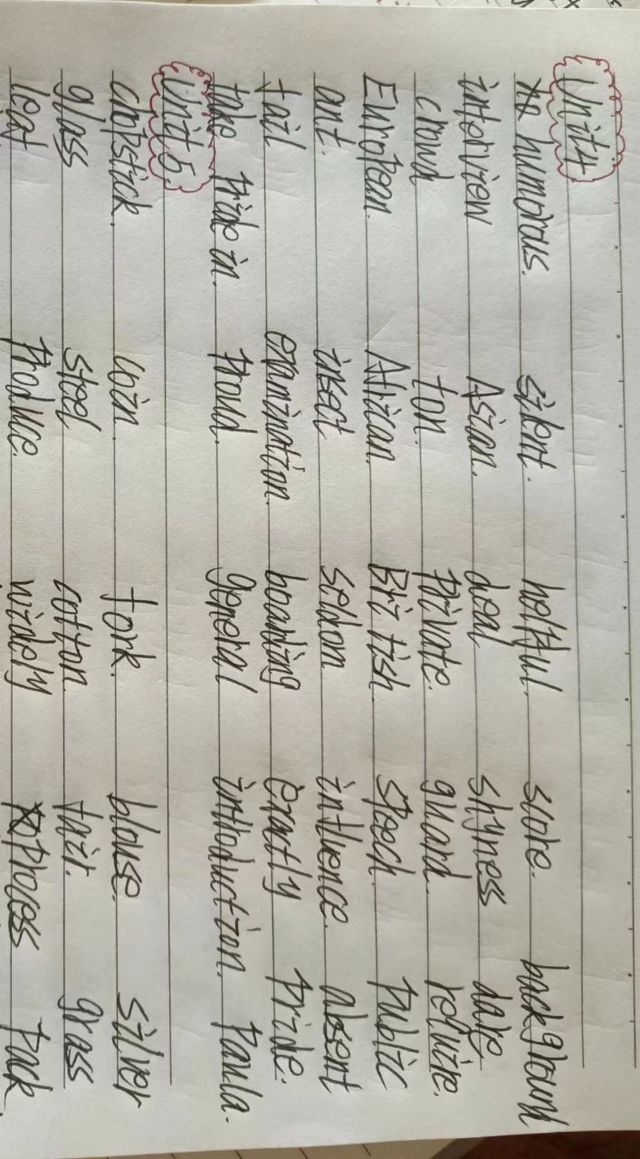 Unit4
humorous. silent. helpful. score. background
interview Asian. deal shyness dare
crowd ton. private. guard. require.
European. African. British. speech. public
ant. insect seldom influence. absent
fail examination boarding exactly pride.
take pride in. proud. general introduction. Paula.
Unit5.
chopstick. coin. fork. blouse. silver
glass steel cotton. fair. grass
leaf. produce widely process pack.